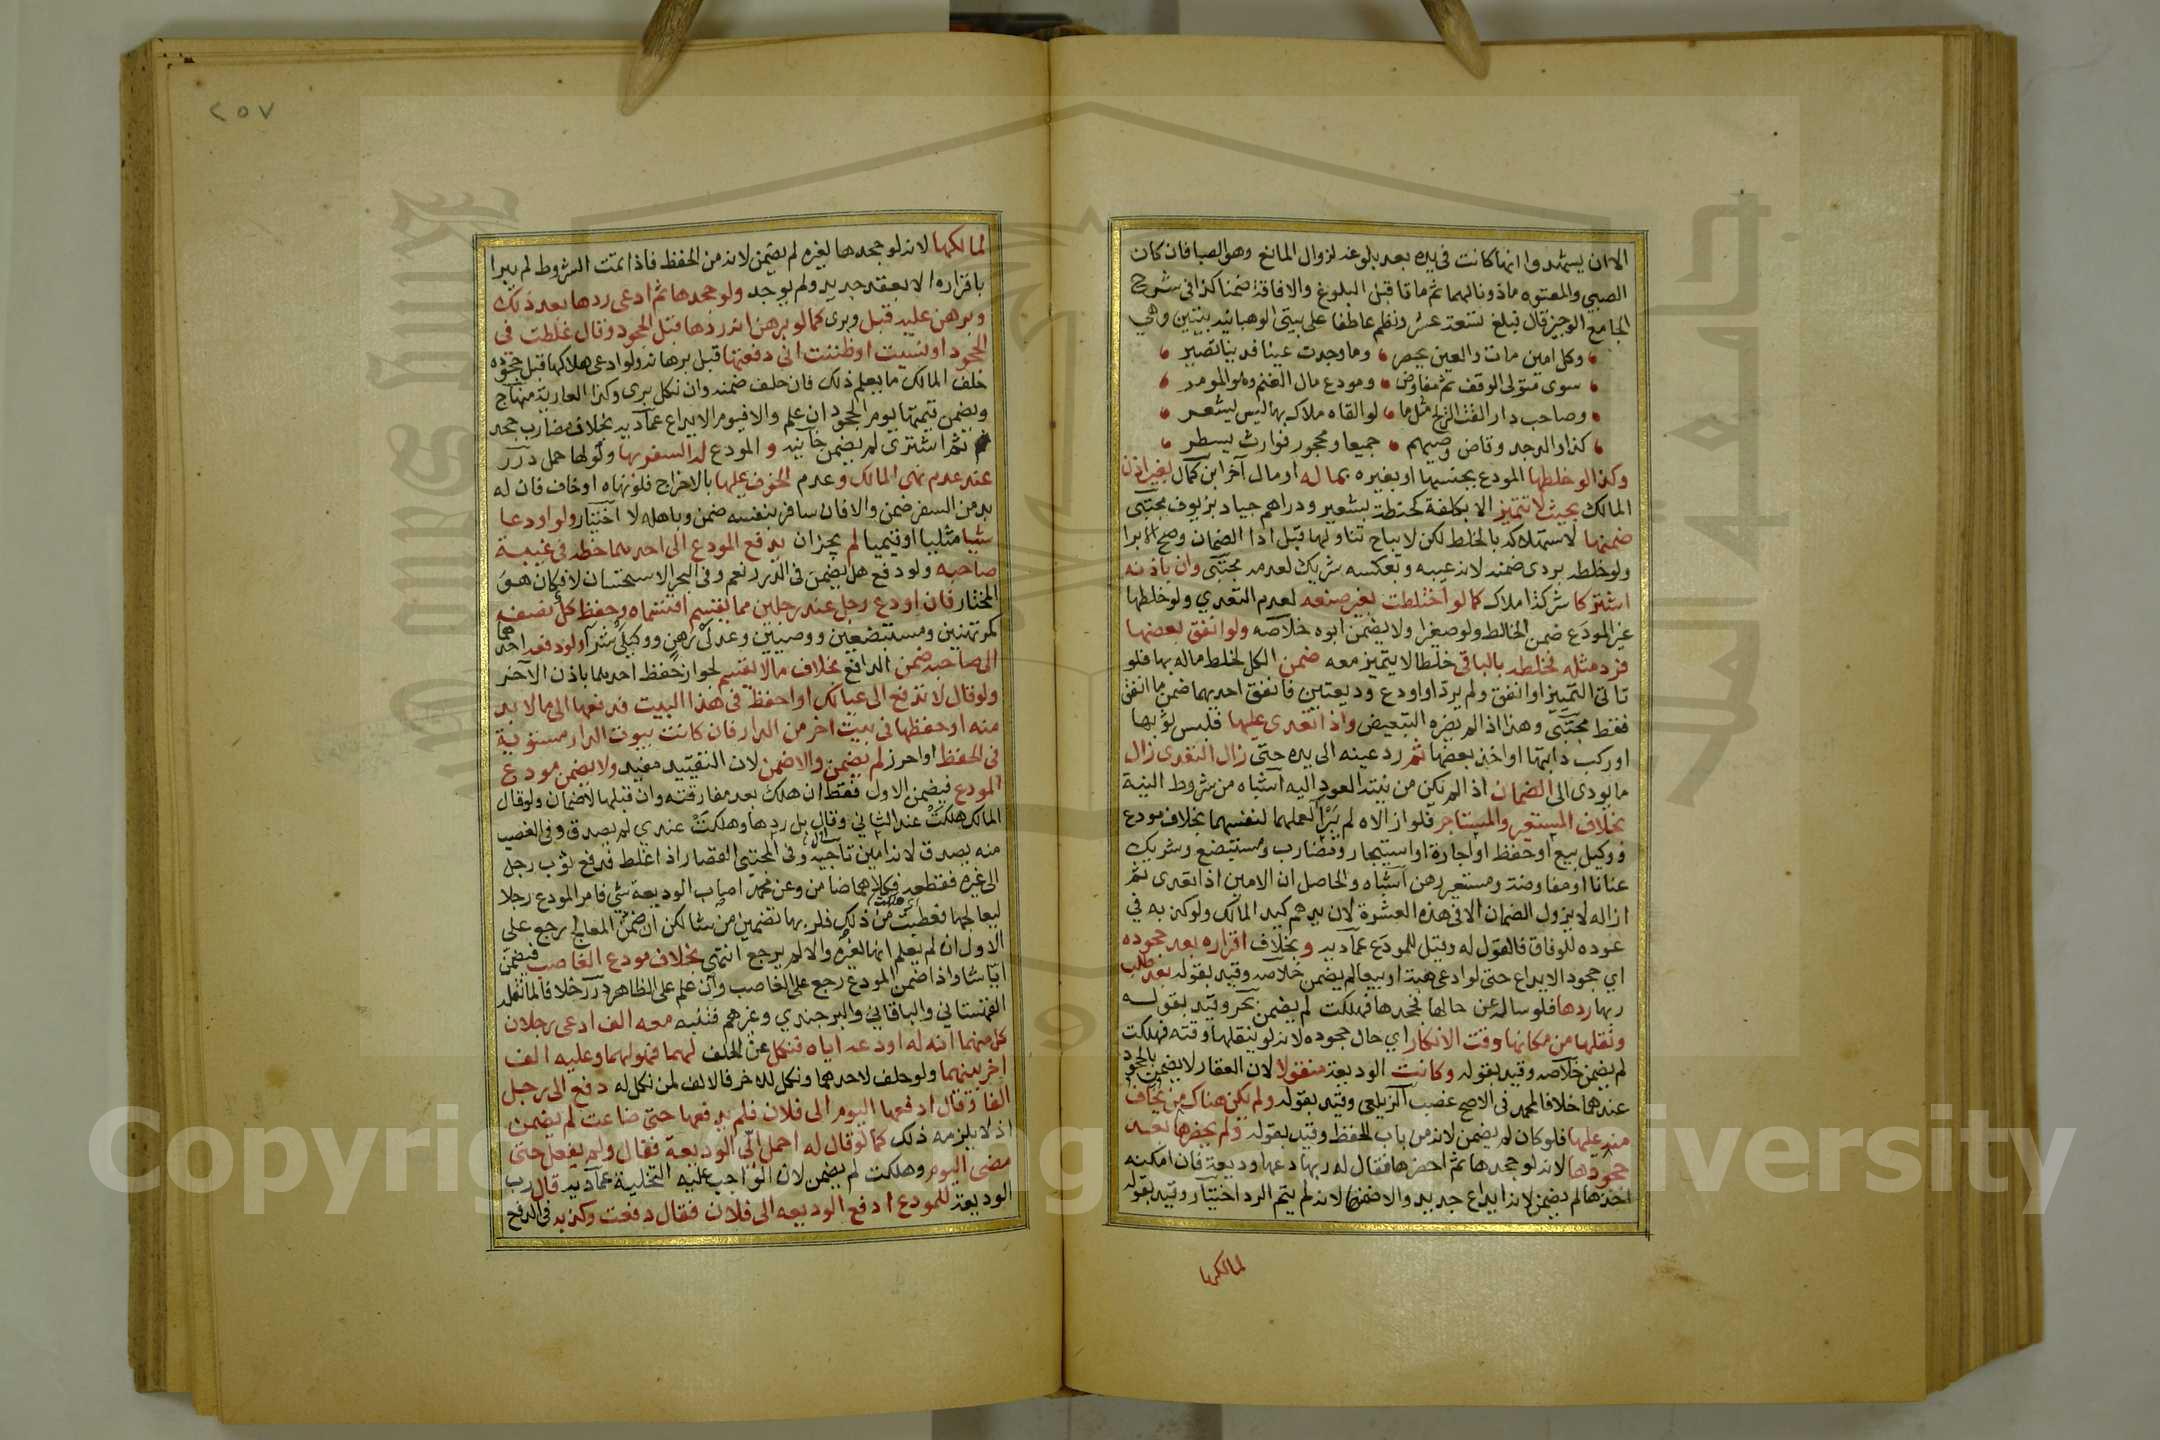 الا ان يشهدوا انها كانت في يده بعد بلوغه لزوال المانع وهو الصبا فان كان
الصبي والمعتوه ماذونا لهما ثم ماتا قبل البلوغ والافاقة ضمنا كذا في شرح
الجامع الوجيز قال فبلغ تسعة عشر ونظم عاطفا على بيتي الوهبانية بيتين وهي
وكل امين مات والعين يحصر وما وجدت عينا فدينا تصير
سوى متولى الوقف ثم مفاوض ومودع مال الغنم وهو المومر
وصاحب دار القت الريح مثل ما لو القاه ملاك بها ليس يشعر
كذا والد جد وقاض وصيهم جميعا ومحجور فوارث يسطر
وكذا لو خلطها المودع بجنسها او بغيره بماله او مال آخر ابن كمال بغير اذن
المالك بحيث لا تتميز الا بكلفة كحنطة بشعير ودراهم جياد بزيوف مجتبى
ضمنها لاستهلاكه بالخلط لكن لا يباح تناولها قبل اداا الضمان وصح الابرا
ولو خلطه بردى ضمنه لانه عيبه وبعكسه شريك لعدمه مجتبى وان باذنه
اشتركا شركة املاك كما لو اختلطت بغير صنعه لعدم التعدي ولو خلطها
غير المودع ضمن الخالط ولو صغيرا ولا يضمن ابوه خلاصه ولو انفق بعضها
فرد مثله فخلطه بالباقي خلطا لا يتميز معه ضمن الكل لخلط ماله بها فلو
تاتى التمييز او انفق ولم يرد او اودع وديعتين فانفق احديهما ضمن ما انفق
فقط مجتبى وهذا اذا لم يضره التبعيض واذا تعدى عليها فلبس ثوبها
او ركب دابتها او اخذ بعضها ثم رد عينه الى يده حتى زال التعدى زال
ما يودى الى الضمان اذا لم يكن من نيته العود اليه اشباه من شروط النية
بخلاف المستعير والمستاجر فلو ازالاه لم يبرآ لعملهما لنفسهما بخلاف مودع
ووكيل بيع او حفظ او اجارة او استيجار ومضارب ومستبضع وشريك
عنانا او مفاوضة ومستعير رهن اشباه والحاصل ان الامين اذا تعدى ثم
ازاله لا يزول الضمان الا في هذه العشرة لان يدهم كيد المالك ولو كذبه في
عوده للوفاق فالقول له وقيل للمودع عماديه وبخلاف اقراره بعد جحوده
اي جحود الايداع حتى لو ادعى هبة او بيعا لم يضمن خلاصه وقيد بقوله بعد طلب
ربها ردها فلو ساله عن حالها فجحدها فهلكت لم يضمن بحر وقيد بقوله
ونقلها من مكانها وقت الانكار اي حال جحوده لانه لو لم ينقلها وقته فهلكت
لم يضمن خلاصه وقيد بقوله وكانت الوديعة منقولا لان العقار لا يضمن بالجحود
عندهما خلافا لمحمد في الاصح غصب الزيلعي وقيد بقوله ولم يكن هناك من يخاف
منه عليها فلو كان لم يضمن لانه من باب الحفظ وقيد بقوله ولم يحضرها بعد
جحودها لانه لو جحدها ثم احضرها فقال له ربها دعها وديعة فان امكنه
اخذها لم يضمن لانه ايداع جديد والا ضمنها لانه لم يتم الرد اختيار وقيد بقوله
لمالكها
٢٥٧
لمالكها لانه لو جحدها لغيره لم يضمن لانه من الحفظ فاذا تمت الشروط لم يبرا
باقراره الا بعقد جديد ولم يوجد ولو جحدها ثم ادعى ردها بعد ذلك
وبرهن عليه قبل وبرى كما لو برهن انه ردها قبل الجحود وقال غلطت في
الجحود او نسيت او ظننت انى دفعتها قبل برهانه ولو ادعى هلاكها قبل جحوده
حلف المالك ما يعلم ذلك فان حلف ضمنه وان نكل برى وكذا العارية منهاج
ويضمن قيمتها يوم الجحود ان علم والا فيوم الايداع عماديه بخلاف مضارب جحد
ثم اشترى لم يضمن خانيه و المودع له السفر بها ولو لها حمل درر
عند عدم نهى المالك وعدم الخوف عليها بالاخراج فلو نهاه او خاف فان له
بد من السفر ضمن والا فان سافر بنفسه ضمن وباهله لا اختيار ولو اودعا
شيا مثليا او قيميا لم يجز ان يدفع المودع الى احدهما حظه في غيبة
صاحبه ولو دفع هل يضمن في الدرر نعم وفي البحر الاستحسان لا فكان هو
المختار فان اودع رجل عند رجلين مما يقسم اقتسماه وحفظ كل نصفه
كمرتهنين ومستبضعين ووصيين وعدلي رهن ووكيلي شرآ ولو دفعه احدهما
الى صاحبه ضمن الدافع بخلاف مالا يقسم لجواز حفظ احدهما باذن الآخر
ولو قال لا تدفع الى عيالك او احفظ في هذا البيت فدفعها الى مالا بد
منه او حفظها في بيت اخر من الدار فان كانت بيوت الدار مستوية
في الحفظ او احرز لم يضمن والا ضمن لان التقييد مفيد ولا يضمن مودع
المودع فيضمن الاول فقط ان هلك بعد مفارقته وان قبلها لا ضمان ولو قال
المالك هلكت عند الثاني وقال بل ردها وهلكت عندي لم يصدق وفي الغصب
منه يصدق لانه امين سراجيه وفي المجتبى القصار اذا غلط فدفع ثوب رجل
الى غيره فقطعه فكلاهما ضامن وعن محمد اصاب الوديعة شي فامر المودع رجلا
ليعالجها فعطبت من ذلك فلربها تضمين من شا لكن ان ضمن المعالج رجع على
الاول ان لم يعلم انها لغيره والا لم يرجع انتهى بخلاف مودع الغاصب فيضمن
ايا شا واذا ضمن المودع رجع على الغاصب وان علم على الظاهر درر خلافا لما نقله
القهستاني والباقاني والبرجندي وغيرهم فتنبه معه الف ادعى رجلان
كل منهما انه له اودعه اياه فنكل عن الحلف لهما فهو لهما وعليه الف
اخر بينهما ولو حلف لاحدهما ونكل للاخر فالالف لمن نكل له دفع الى رجل
الفا وقال ادفعها اليوم الى فلان فلم يدفعها حتى ضاعت لم يضمن
اذ لا يلزمه ذلك كما لو قال له احمل الى الوديعة فقال ولم يفعل حتى
مضى اليوم وهلكت لم يضمن لان الواجب عليه التخلية عماديه قال رب
الوديعة للمودع ادفع الوديعه الى فلان فقال دفعت وكذبه في الدفع